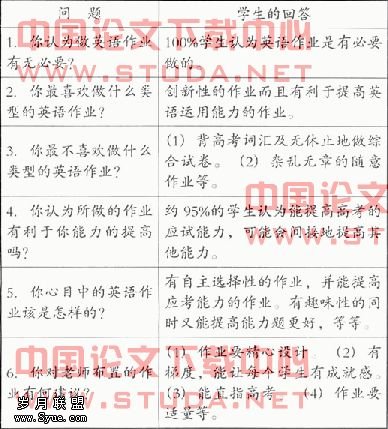 问 题
学生的回答
1. 你认为做英语作业
有无必要?
100%学生认为英语作业是有必要
做的。
2. 你最喜欢做什么类
型的英语作业?
创新性的作业而且有利于提高英
语运用能力的作业。
3. 你最不喜欢做什么
类型的英语作业?
(1) 背高考词汇及无休止地做综
合试卷。 (2) 杂乱无章的随意
作业等。
4. 你认为所做的作业
有利于你能力的提高
吗?
约 95%的学生认为能提高高考的
应试能力,可能会间接地提高其
他能力。
5. 你心目中的英语作
业该是怎样的?
有自主选择性的作业,并能提高
应考能力的作业。有趣味性的同
时又能提高能力题更好,等等。
6. 你对老师布置的作
业有何建议?
(1) 作业要精心设计 (2) 有
梯度,能让每个学生有成就感。
(3) 能直指高考 (4) 作业要
适量等。
中国论文下载中心
WWW.STUDA.NET
中国论文下载中心
WWW.STUDA.NET
中国论文下载中心
WWW.STUDA.NET
岁月联盟
www.Syue.com